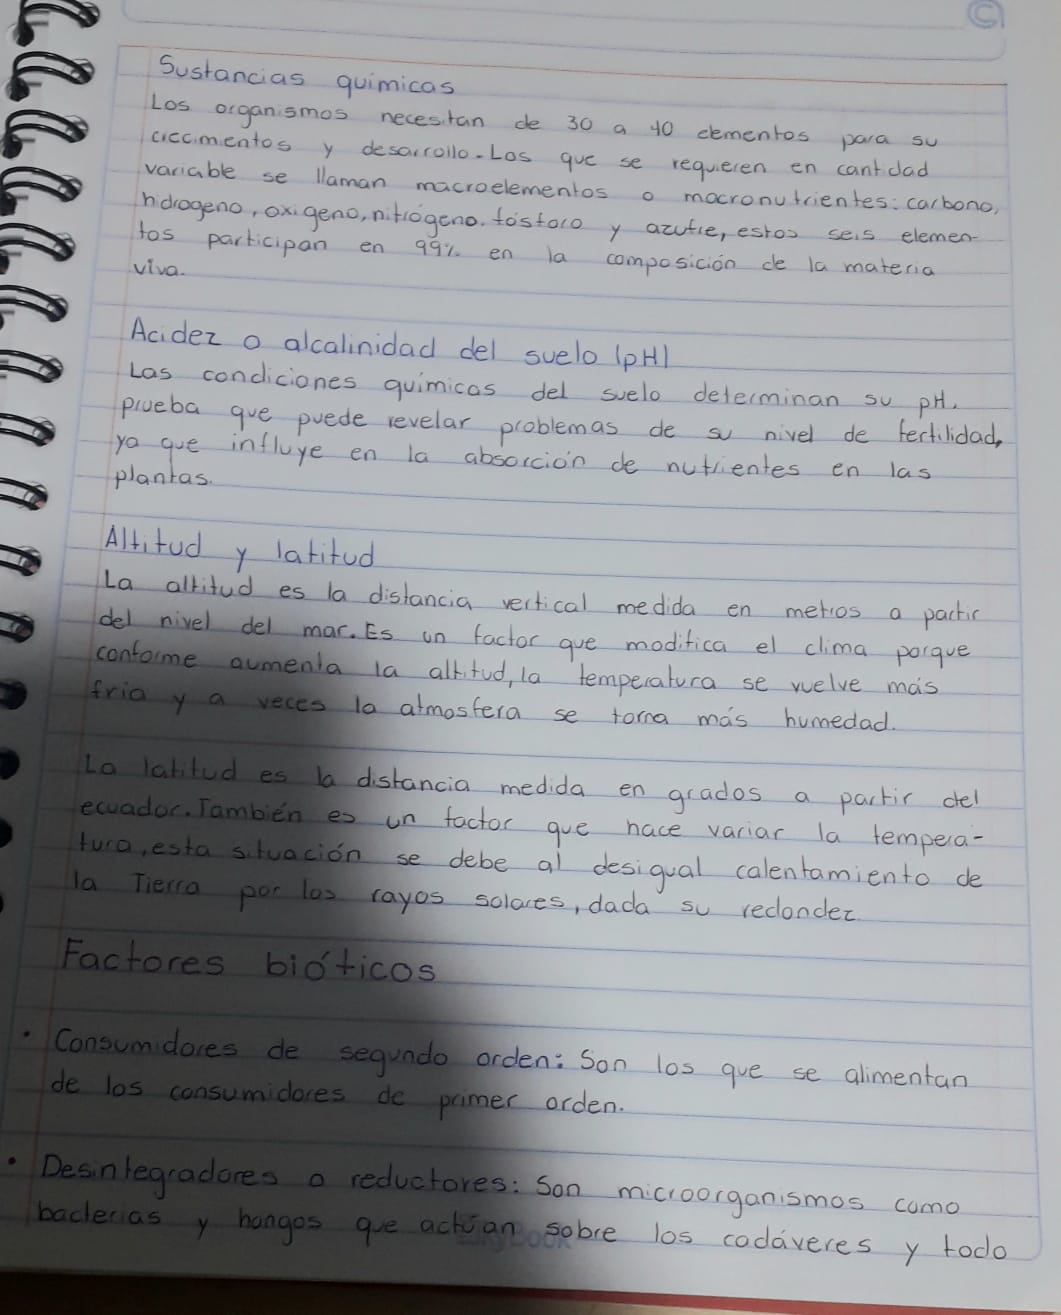 Sustancias químicas
Los organismos necesitan de 30 a 40 elementos para su
crecimentos y desarrollo. Los que se requieren en cantidad
variable se llaman macroelementos o macronutrientes: carbono,
hidrogeno, oxigeno, nitrógeno, fosforo y azufre, estos seis elemen-
tos participan en 99% en la composición de la materia
viva.
Acidez o alcalinidad del suelo (pH)
Las condiciones químicas del suelo determinan su pH.
prueba que puede revelar problemas de su nivel de fertilidad,
ya que influye en la absorción de nutrientes en las
plantas.
Altitud y latitud
La altitud es la distancia vertical medida en metros a partir
del nivel del mar. Es un factor que modifica el clima porque
conforme aumenta la altitud, la temperatura se vuelve más
fria y a veces la atmosfera se torna más humedad.
La latitud es la distancia medida en grados a partir del
ecuador. También es un factor que hace variar la tempera-
tura, esta situación se debe al desigual calentamiento de
la Tierra por los rayos solares, dada su redondez.
Factores bióticos
• Consumidores de segundo orden: Son los que se alimentan
de los consumidores de primer orden.
• Desintegradores o reductores: Son microorganismos como
bacterias y hongos que actúan sobre los cadáveres y todo